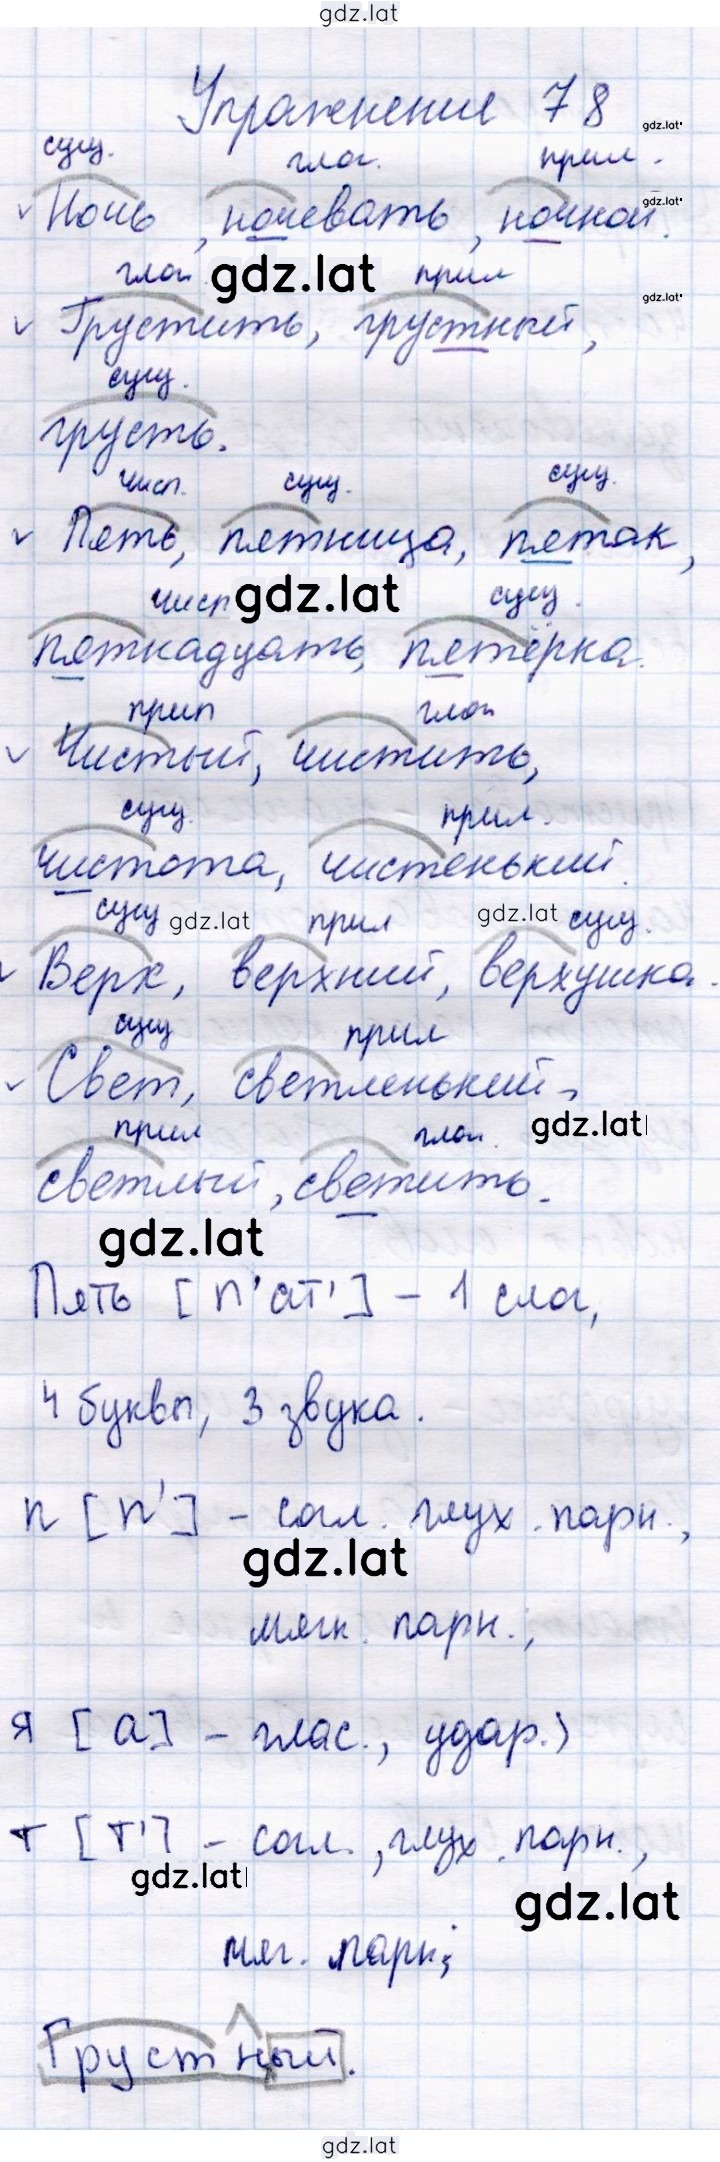 gdz.lat
Упражнение 78
gdz.lat
сущ. глаг. прил.
gdz.lat
Ночь, ночевать, ночной.
глаг. gdz.lat прил
gdz.lat
Грустить, грустный,
сущ.
грусть.
числ. сущ. сущ.
Пять, пятница, пятак,
числ gdz.lat сущ.
пятнадцать, пятёрка.
прил глаг
Чистый, чистить,
сущ. прил.
чистота, чистенький.
сущ gdz.lat прил gdz.lat сущ.
Верх, верхний, верхушка.
сущ прил
Свет, светленький,
gdz.lat
прил глаг.
светлый, светить.
gdz.lat
Пять [п'ат'] – 1 слог,
4 буквы, 3 звука.
п [п'] – согл. глух. парн.,
gdz.lat
мягк. парн.;
я [а] – глас., удар.;
т [т'] – согл., глух. парн.,
gdz.lat
gdz.lat
мяг. парн;
Грустный.
gdz.lat